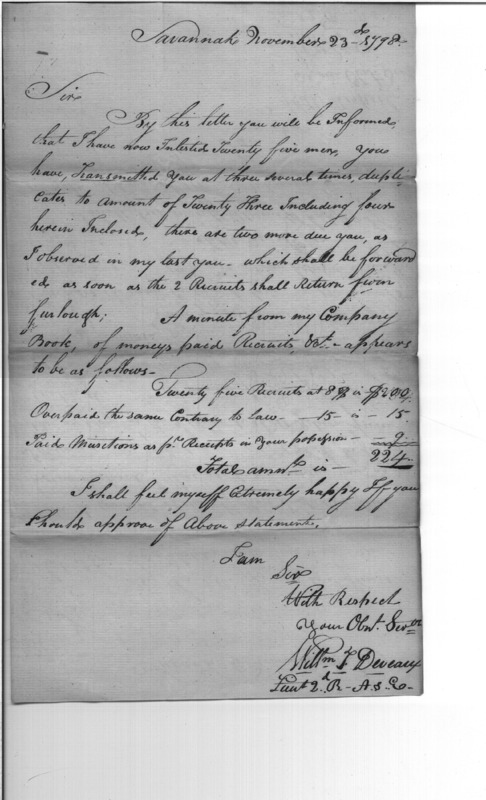 Savannah November 23d 1798
Sir
By this letter you will be Informed,
that I have now Inlisted Twenty five men, you
have, Transmitted you at three several times, dupli-
cates to amount of Twenty Three Including four
herein Inclosed, there are two more due you, as
I observed in my last you - which shall be forward
ed as soon as the 2 Recruits shall Return from
furlough; A minute from my Company
Book, of moneys paid Recruits, &ct. - appears
to be as follows -
Twenty five Recruits at 8$ is $200,
Overpaid the same Contrary to law - 15 - is - 15.
Paid Musitions as pr. Receipts in your possession - 2
224
Total amnt. is -
I shall feel myself Extremely happy If you
Should approve of Above statement,
I am
Sir
With Respect
Your Obnt. Servt
Willm J Deveaux
Lieut 2d R - A & E -